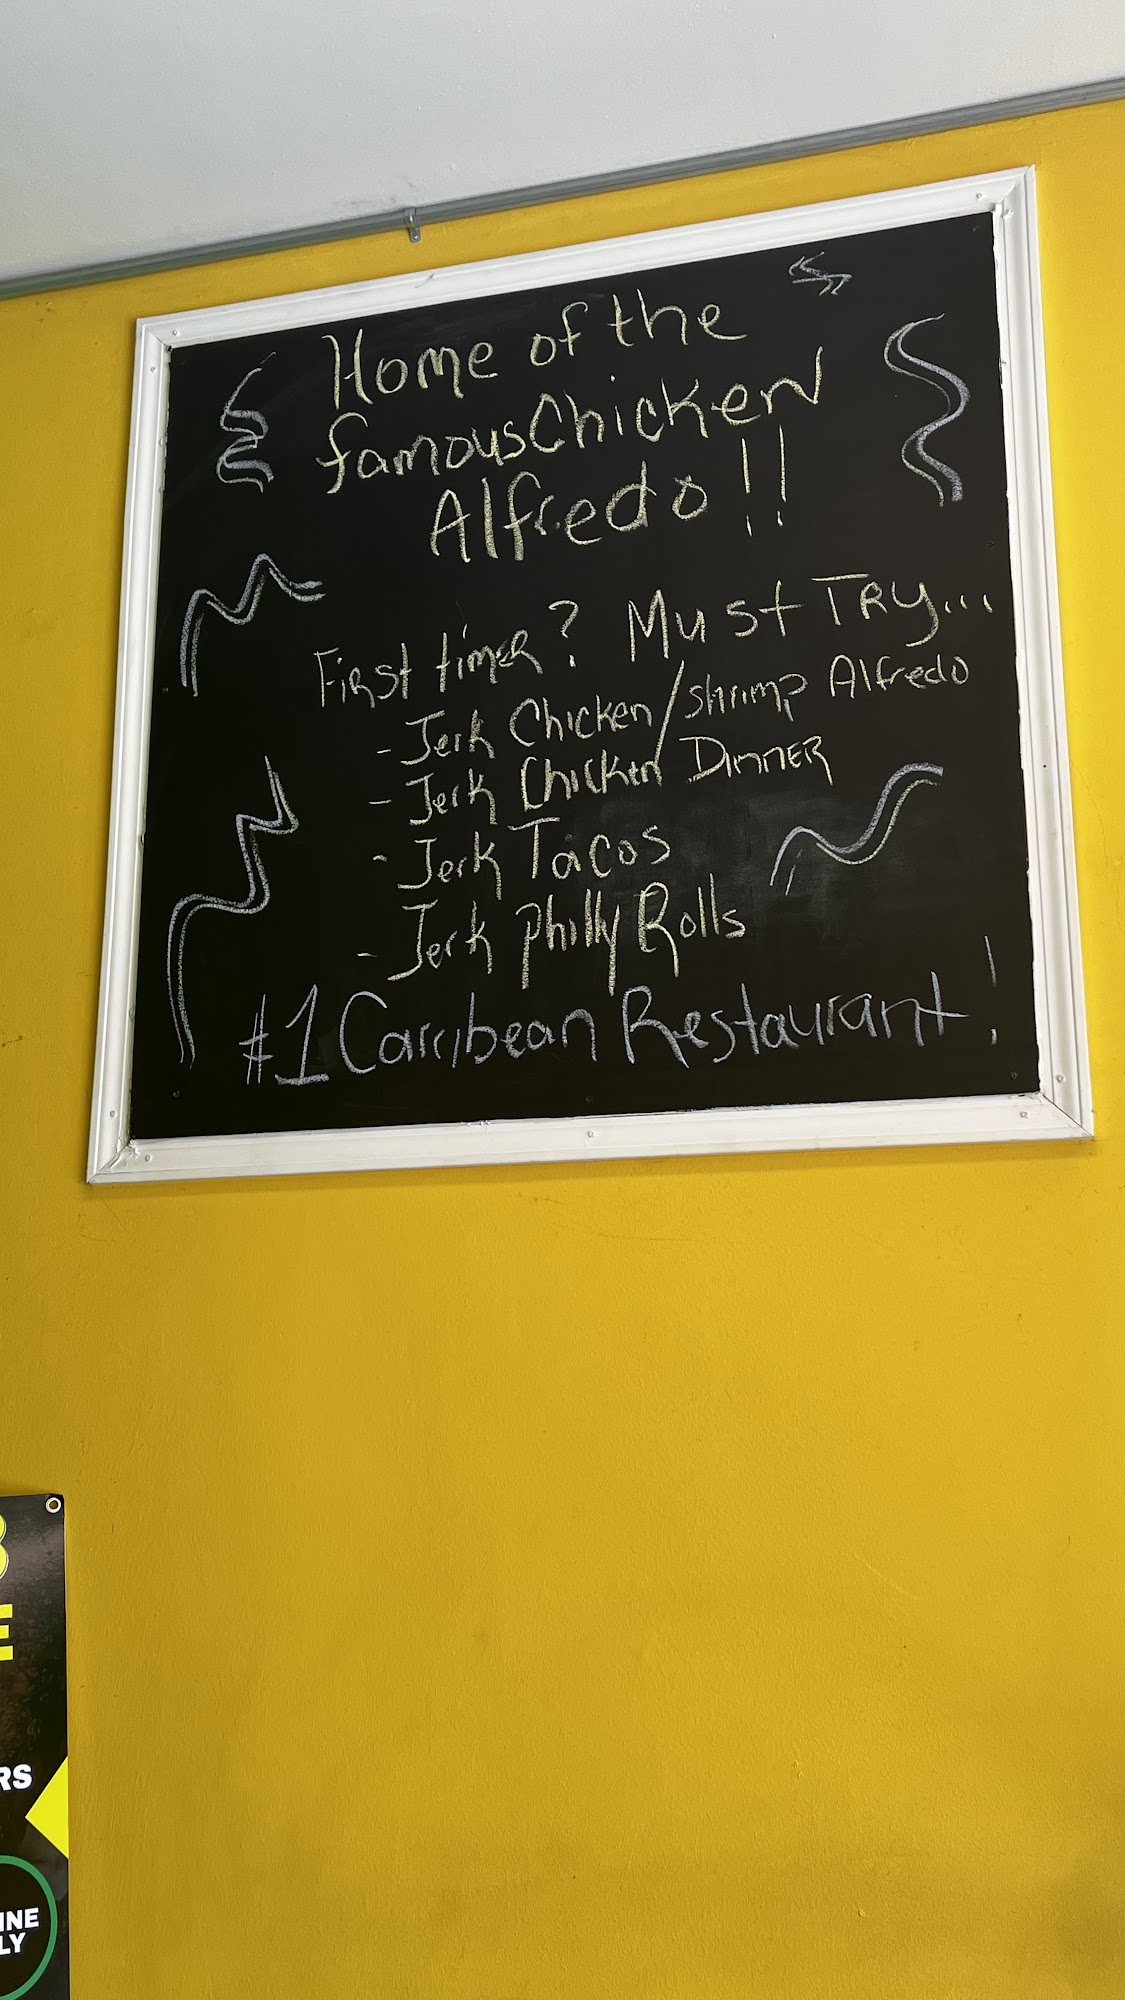 Home of the
famous Chicken
Alfredo!!
First timer? Must Try...
- Jerk Chicken/shrimp Alfredo
- Jerk Chicken Dinner
- Jerk Tacos
- Jerk Philly Rolls
#1 Carribean Restaurant!
E
RS
INE
LY